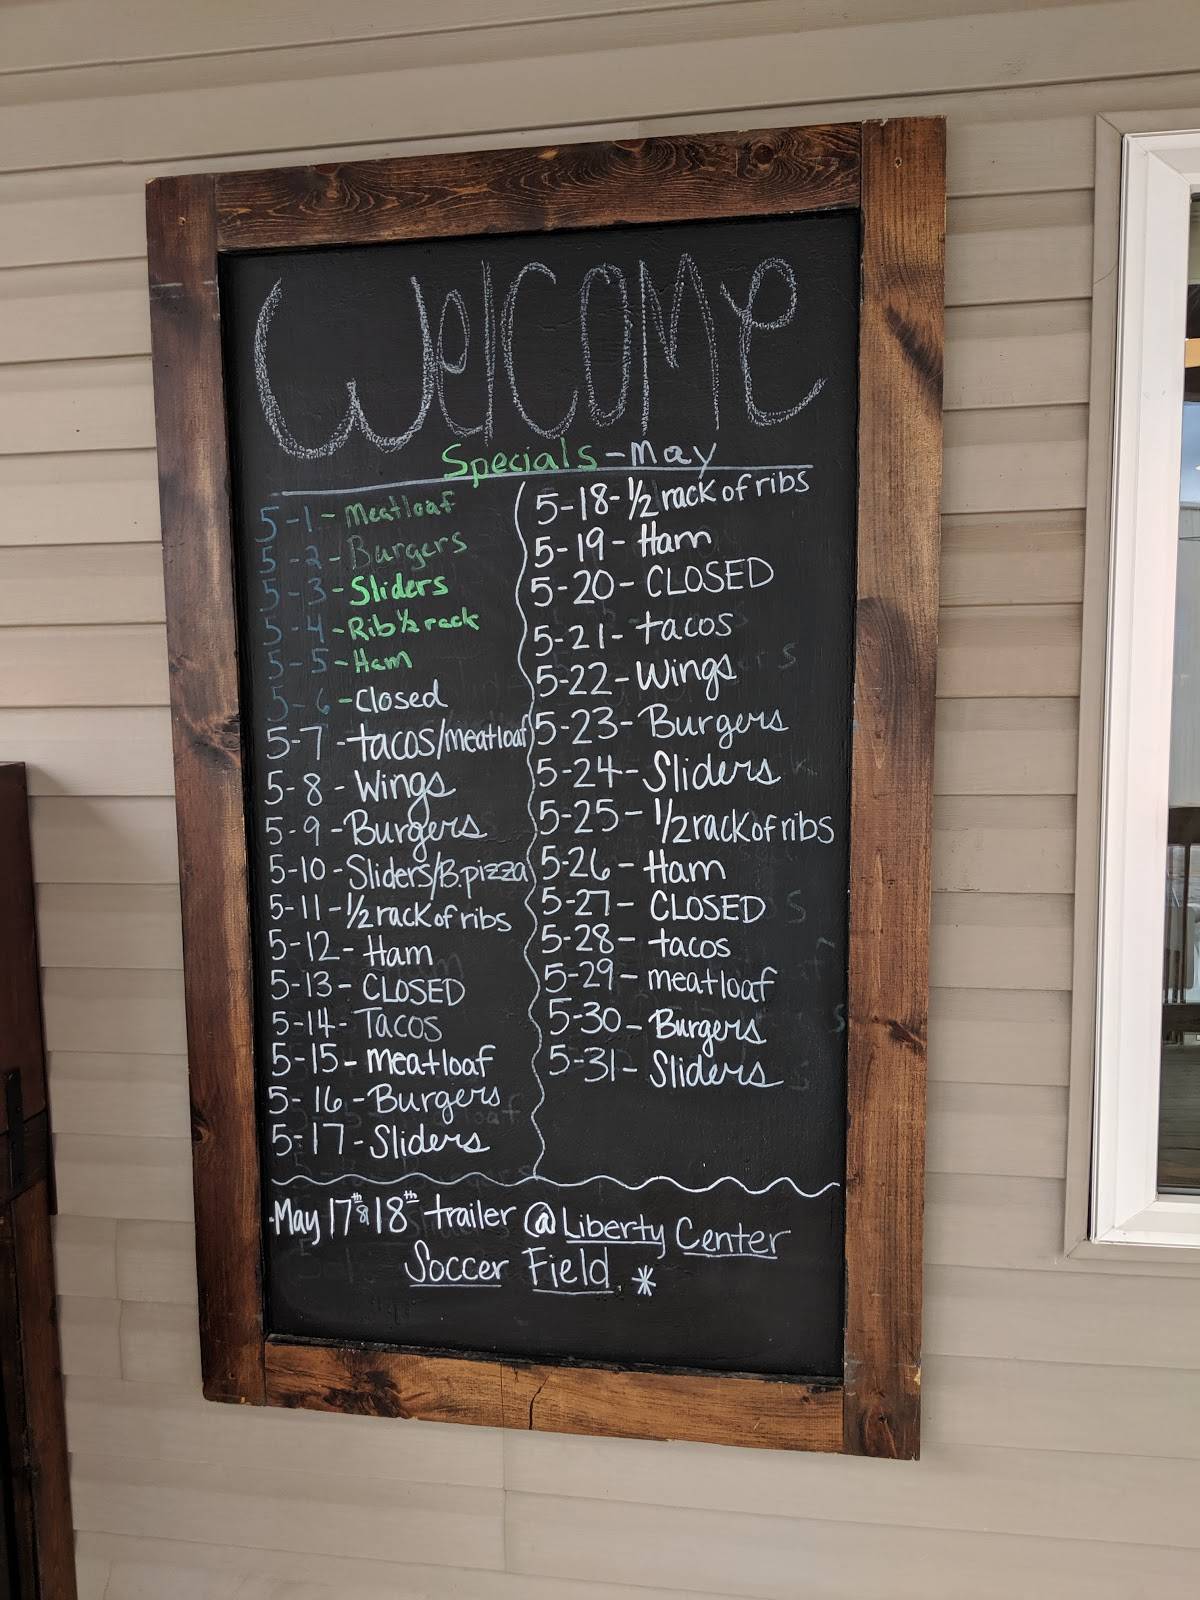 Welcome
Specials - May
5-1- Meatloaf
5-2- Burgers
5-3-Sliders
5-4-Rib ½ rack
5-5-Ham
5-6-Closed
5-7-tacos/meatloaf
5-8-Wings
5-9-Burgers
5-10-Sliders/B.pizza
5-11-1/2 rack of ribs
5-12-Ham
5-13-CLOSED
5-14-Tacos
5-15-meatloaf
5-16-Burgers
5-17-Sliders
5-18-1/2 rack of ribs
5-19-Ham
5-20-CLOSED
5-21-tacos
5-22-Wings
5-23-Burgers
5-24-Sliders
5-25-1/2 rack of ribs
5-26-Ham
5-27-CLOSED
5-28-tacos
5-29-meatloaf
5-30-Burgers
5-31-Sliders
·May 17th & 18th trailer @ Liberty Center
Soccer Field. *